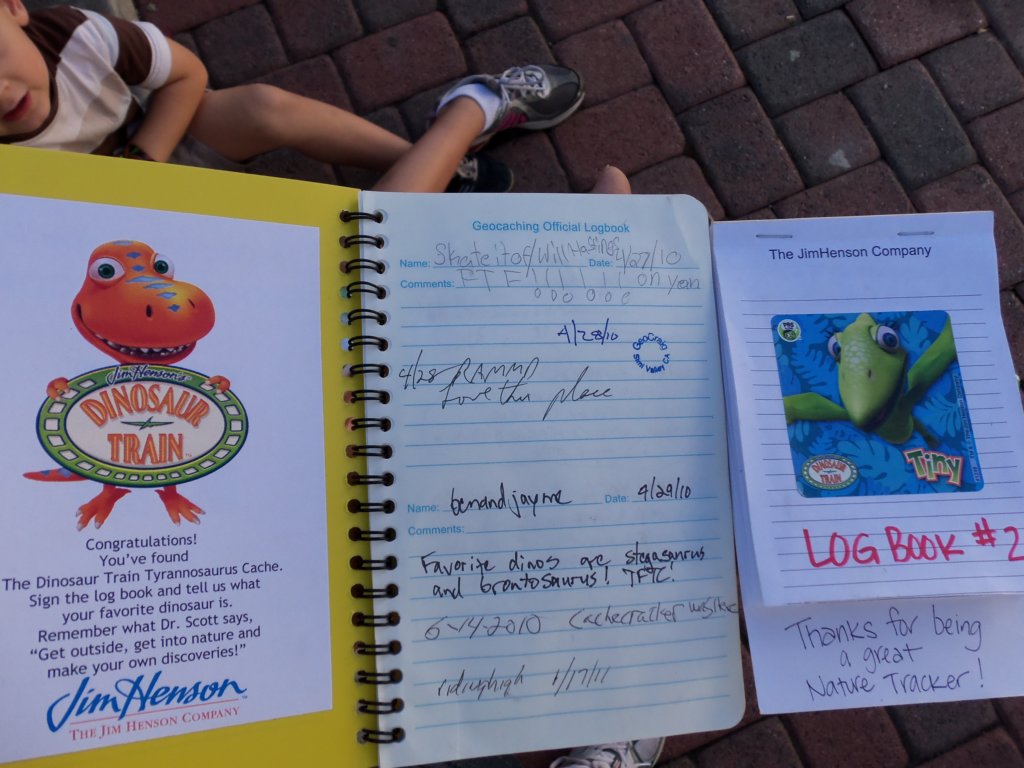 Jim Henson's
DINOSAUR
TRAIN
Congratulations!
You've found
The Dinosaur Train Tyrannosaurus Cache.
Sign the log book and tell us what
your favorite dinosaur is.
Remember what Dr. Scott says,
"Get outside, get into nature and
make your own discoveries!"
Jim Henson
THE JIM HENSON COMPANY
Geocaching Official Logbook
Name: Skateitof/Will Date: 4/27/10
Comments: FTF!!!!!! on yeah
4/28/10
GeoCraig
Simi Valley CA
4/28
Love this place
Name: benandjayme Date: 4/29/10
Comments:
Favorite dinos are stegasaurus
and brontosaurus! TFTC!
6-14-2010 Cachecracker
1/17/11
The JimHenson Company
PBS KIDS
DINOSAUR
TRAIN
Tiny
LOG BOOK #2
Thanks for being
a great
Nature Tracker!